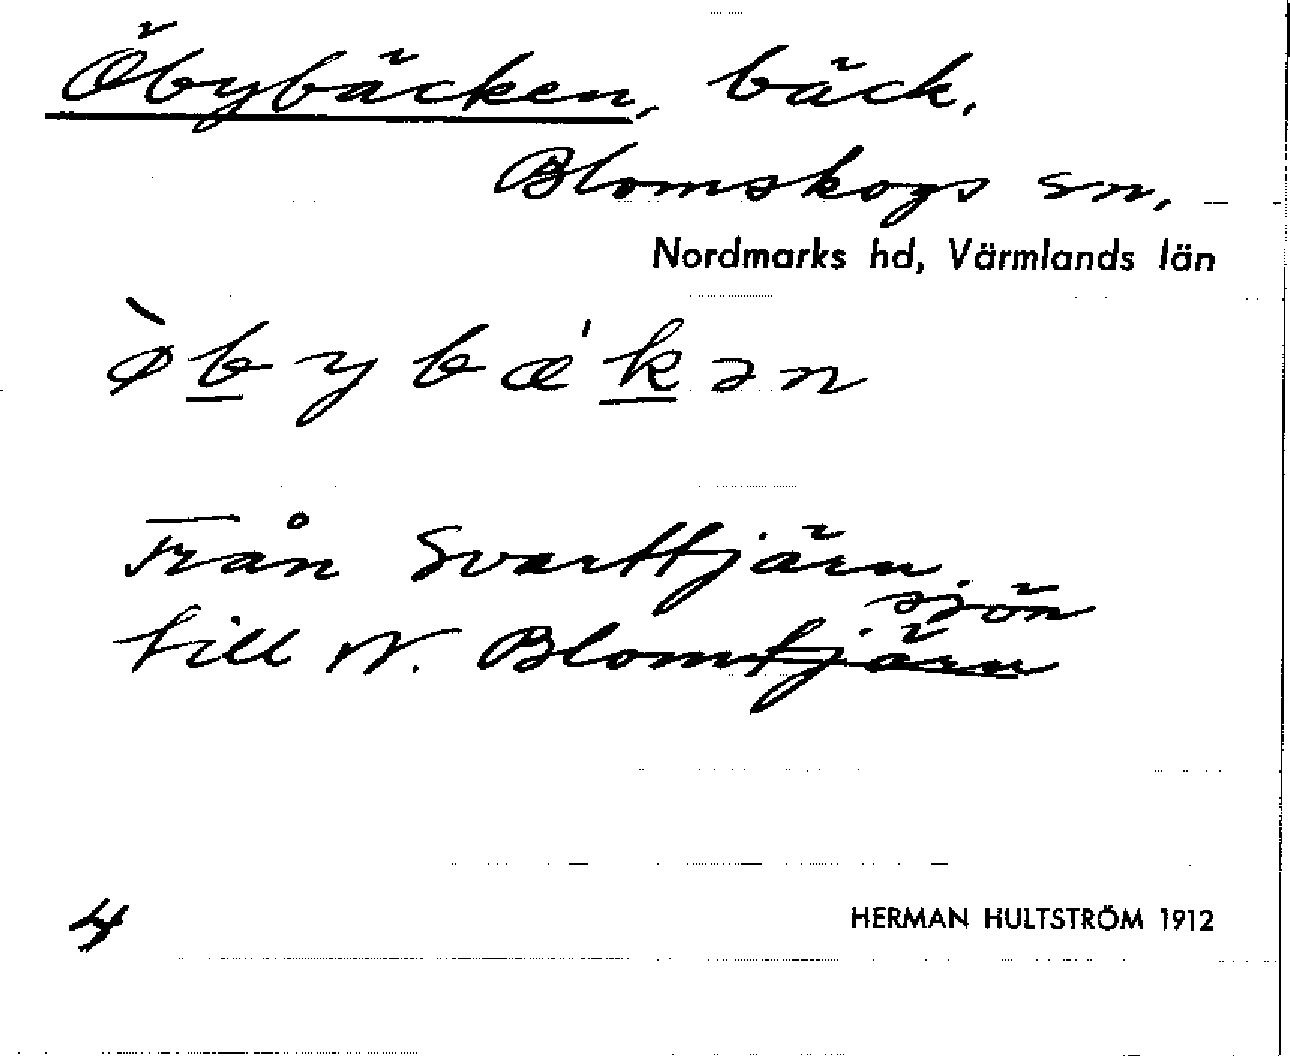 Öbybäcken, bäck,
Blomskogs sn,
Nordmarks hd, Värmlands län
ø̀b̲ybæ´k̲ən
Från Svarttjärn
sjön
till N. Blomtjärn
4
HERMAN HULTSTRÖM 1912